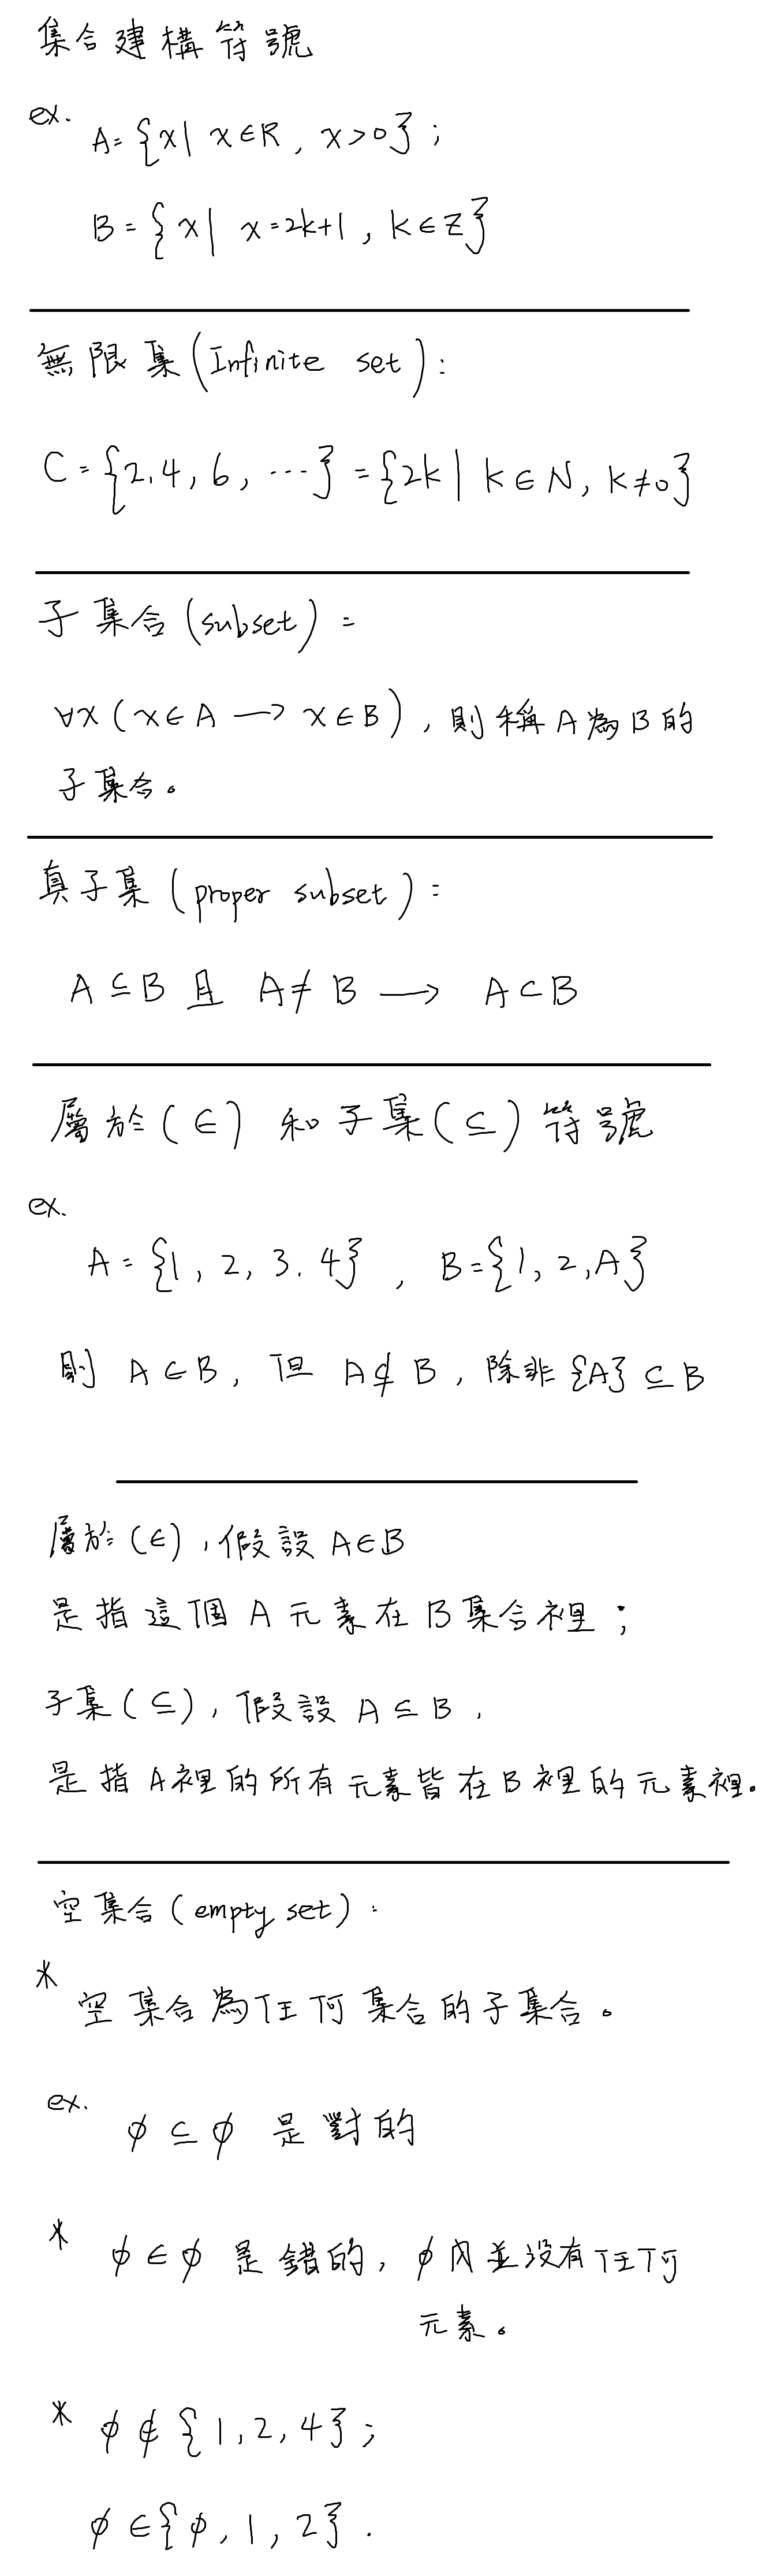 集合建構符號
ex.
A={x| x∈R, x>0};
B={x| x=2k+1, k∈Z}
無限集(Infinite set):
C={2.4, 6, ...}={2k| k∈N, k≠0}
子集合(subset):
∀x(x∈A→x∈B), 則稱A為B的
子集合。
真子集(proper subset):
A⊆B 且 A≠B → A⊂B
屬於(∈) 和子集(⊆)符號
ex.
A={1, 2, 3. 4}, B={1, 2, A}
則 A∈B, 但 A⊄B, 除非{A}⊆B
屬於(∈), 假設A∈B
是指這個A元素在B集合裡;
子集(⊆), 假設A⊆B,
是指A裡的所有元素皆在B裡的元素裡.
空集合(empty set):
* 空集合為任何集合的子集合。
ex. ϕ⊆ϕ 是對的
* ϕ∈ϕ 是錯的, ϕ內並沒有任何
元素。
* ϕ∉{1, 2, 4};
ϕ∈{ϕ, 1, 2}.